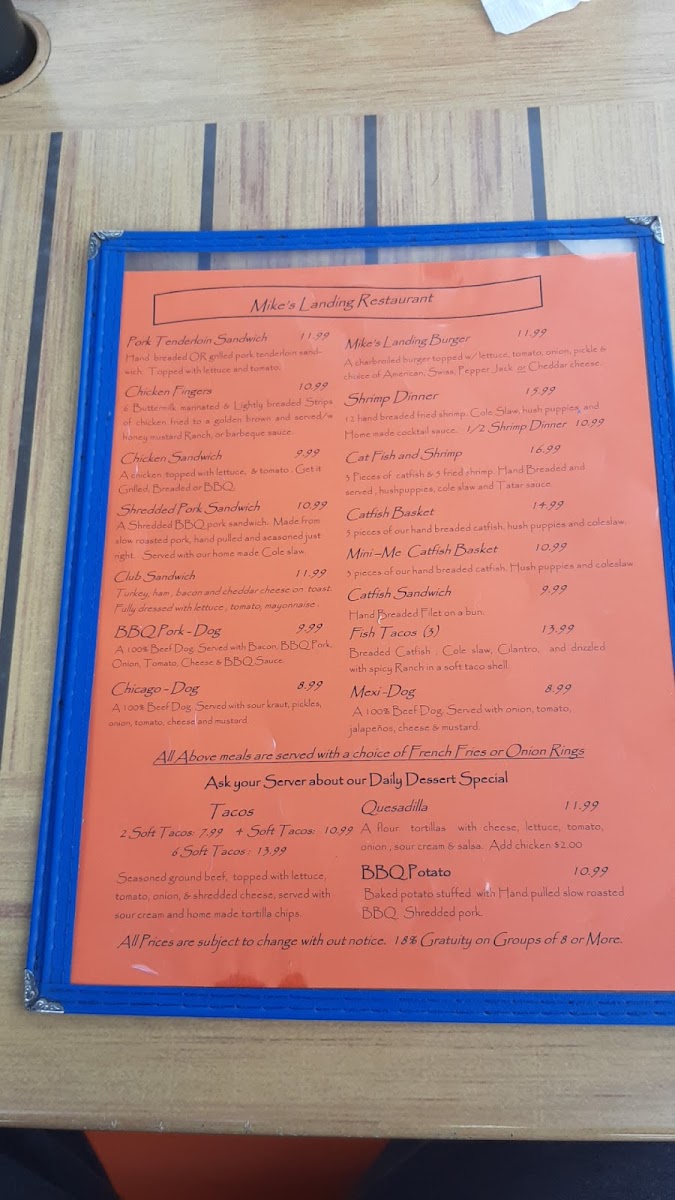 Mike's Landing Restaurant
Pork Tenderloin Sandwich 11.99
Hand breaded OR grilled pork tenderloin sand-
wich. Topped with lettuce and tomato.
Chicken Fingers 10.99
6 Buttermilk marinated & Lightly breaded Strips
of chicken fried to a golden brown and served/w
honey mustard Ranch, or barbeque sauce
Chicken Sandwich 9.99
A chicken topped with lettuce, & tomato . Get it
Grilled, Breaded or BBQ.
Shredded Pork Sandwich 10.99
A Shredded BBQ pork sandwich. Made from
slow roasted pork, hand pulled and seasoned just
right. Served with our home made Cole slaw.
Club Sandwich 11.99
Turkey, ham , bacon and cheddar cheese on toast.
Fully dressed with lettuce , tomato, mayonnaise .
BBQ Pork - Dog 9.99
A 100% Beef Dog. Served with Bacon, BBQ Pork,
Onion, Tomato, Cheese & BBQ Sauce.
Chicago - Dog 8.99
A 100% Beef Dog. Served with sour kraut, pickles,
onion, tomato, cheese and mustard
Mike's Landing Burger 11.99
A charbroiled burger topped w/ lettuce, tomato, onion, pickle &
choice of American, Swiss, Pepper Jack or Cheddar cheese.
Shrimp Dinner 15.99
12 hand breaded fried shrimp. Cole Slaw, hush puppies, and
Home made cocktail sauce. 1/2 Shrimp Dinner 10.99
Cat Fish and Shrimp 16.99
3 Pieces of catfish & 5 fried shrimp. Hand Breaded and
served , hushpuppies, cole slaw and Tatar sauce.
Catfish Basket 14.99
5 pieces of our hand breaded catfish, hush puppies and coleslaw.
Mini-Me Catfish Basket 10.99
3 pieces of our hand breaded catfish. Hush puppies and coleslaw
Catfish Sandwich 9.99
Hand Breaded Filet on a bun.
Fish Tacos (3) 13.99
Breaded Catfish , Cole slaw, Cilantro, and drizzled
with spicy Ranch in a soft taco shell
Mexi-Dog 8.99
A 100% Beef Dog. Served with onion, tomato,
jalapeños, cheese & mustard.
All Above meals are served with a choice of French Fries or Onion Rings
Ask your Server about our Daily Dessert Special
Tacos
2 Soft Tacos: 7.99 4 Soft Tacos: 10.99
6 Soft Tacos : 13.99
Seasoned ground beef, topped with lettuce,
tomato, onion, & shredded cheese, served with
sour cream and home made tortilla chips.
Quesadilla 11.99
A flour tortillas with cheese, lettuce, tomato,
onion , sour cream & salsa. Add chicken $2.00
BBQ Potato 10.99
Baked potato stuffed with Hand pulled slow roasted
BBQ Shredded pork.
All Prices are subject to change with out notice. 18% Gratuity on Groups of 8 or More.